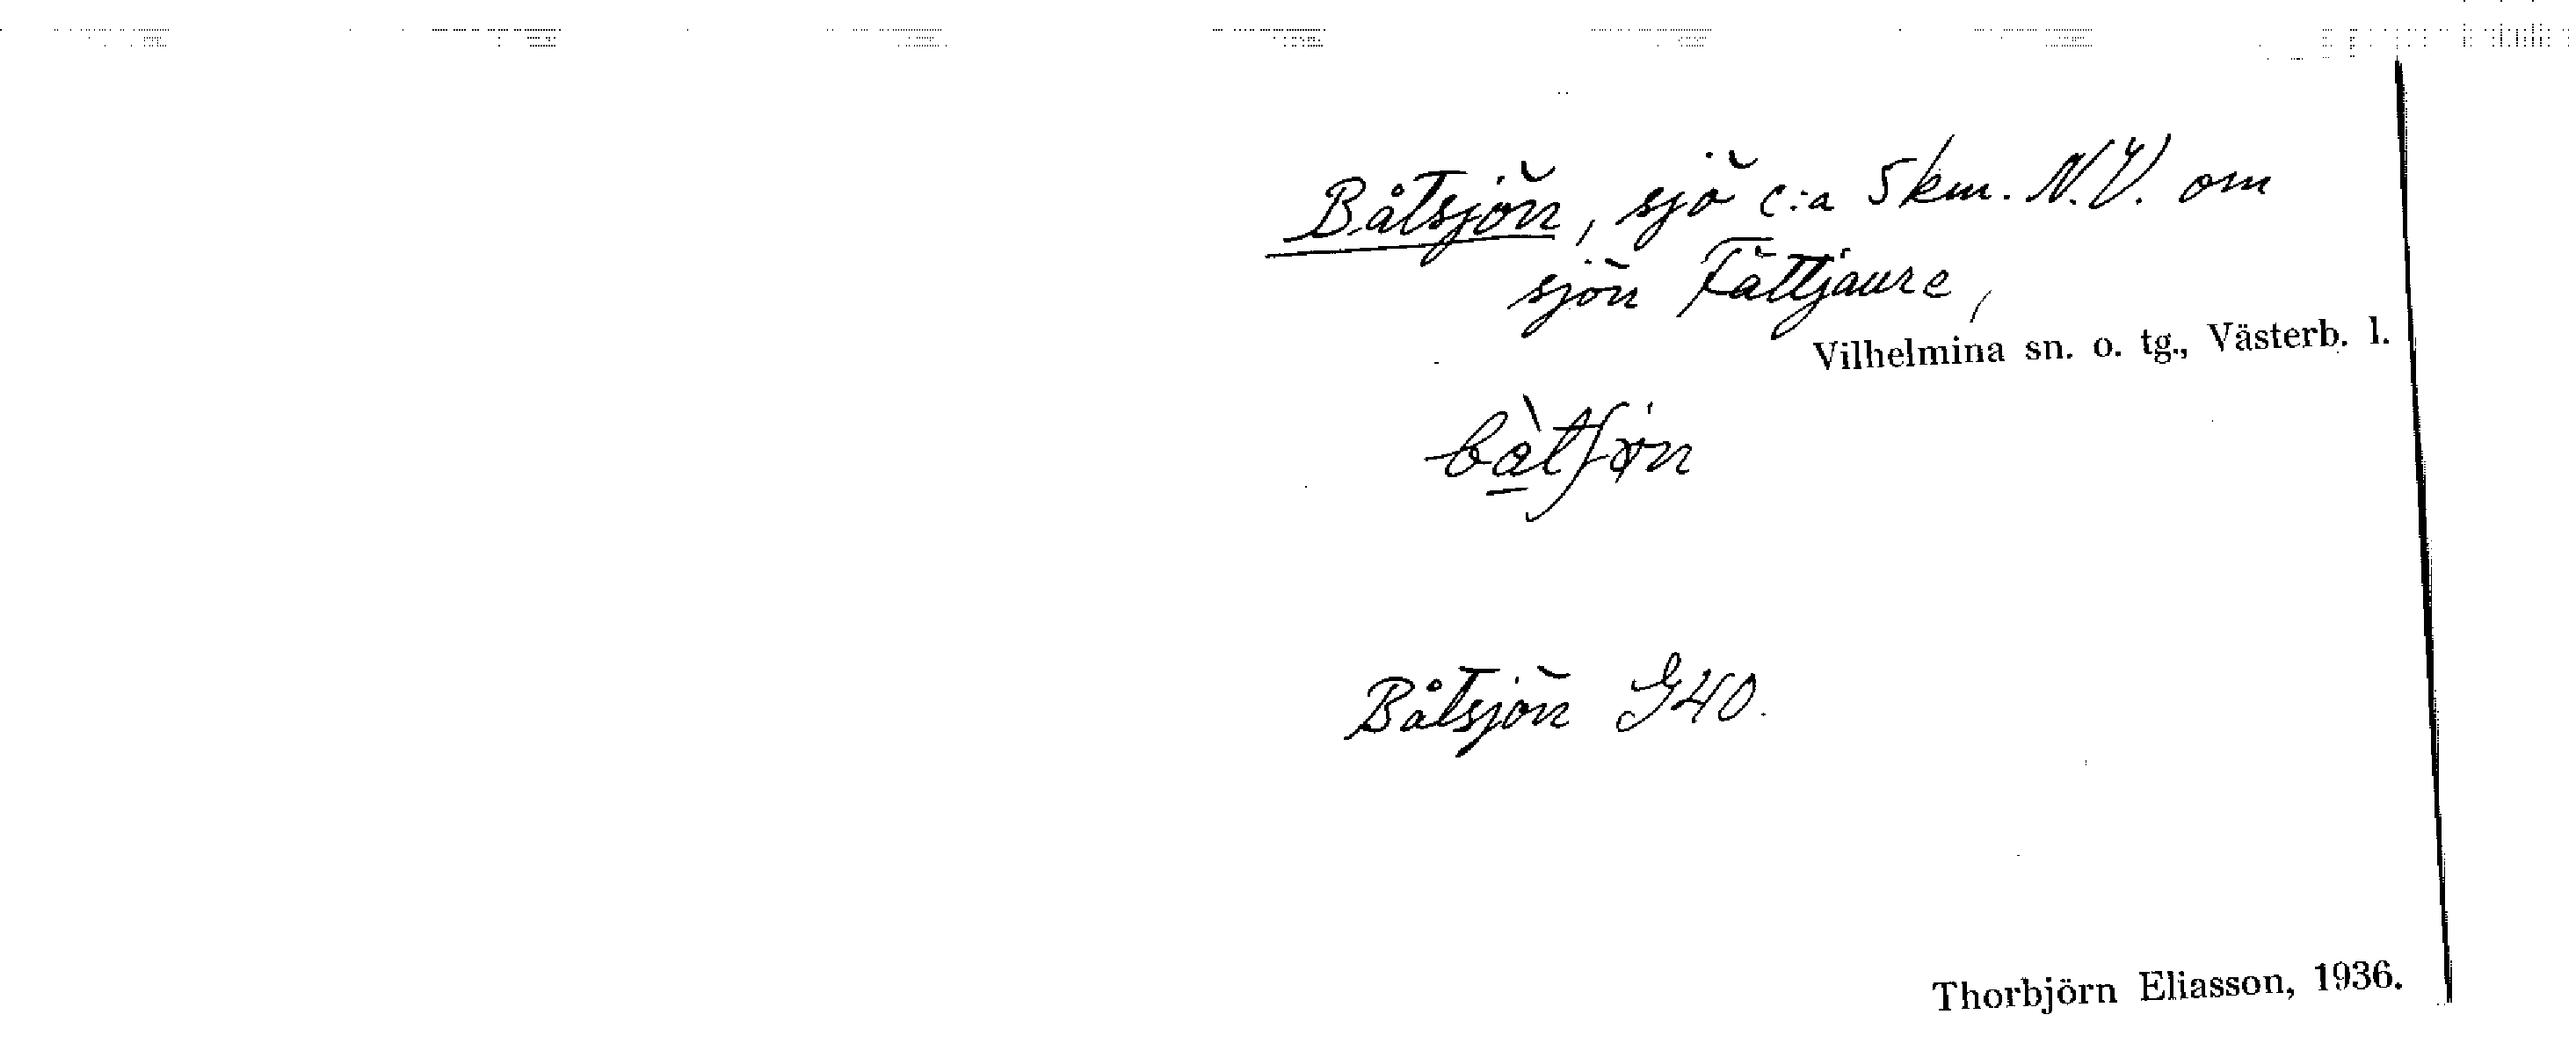 Båtsjön, sjö c:a 5 km. N.V. om
sjön Fättjaure,
Vilhelmina sn. o. tg., Västerb. l.
bàtʃøn
Båtsjön G40.
Thorbjörn Eliasson, 1936.